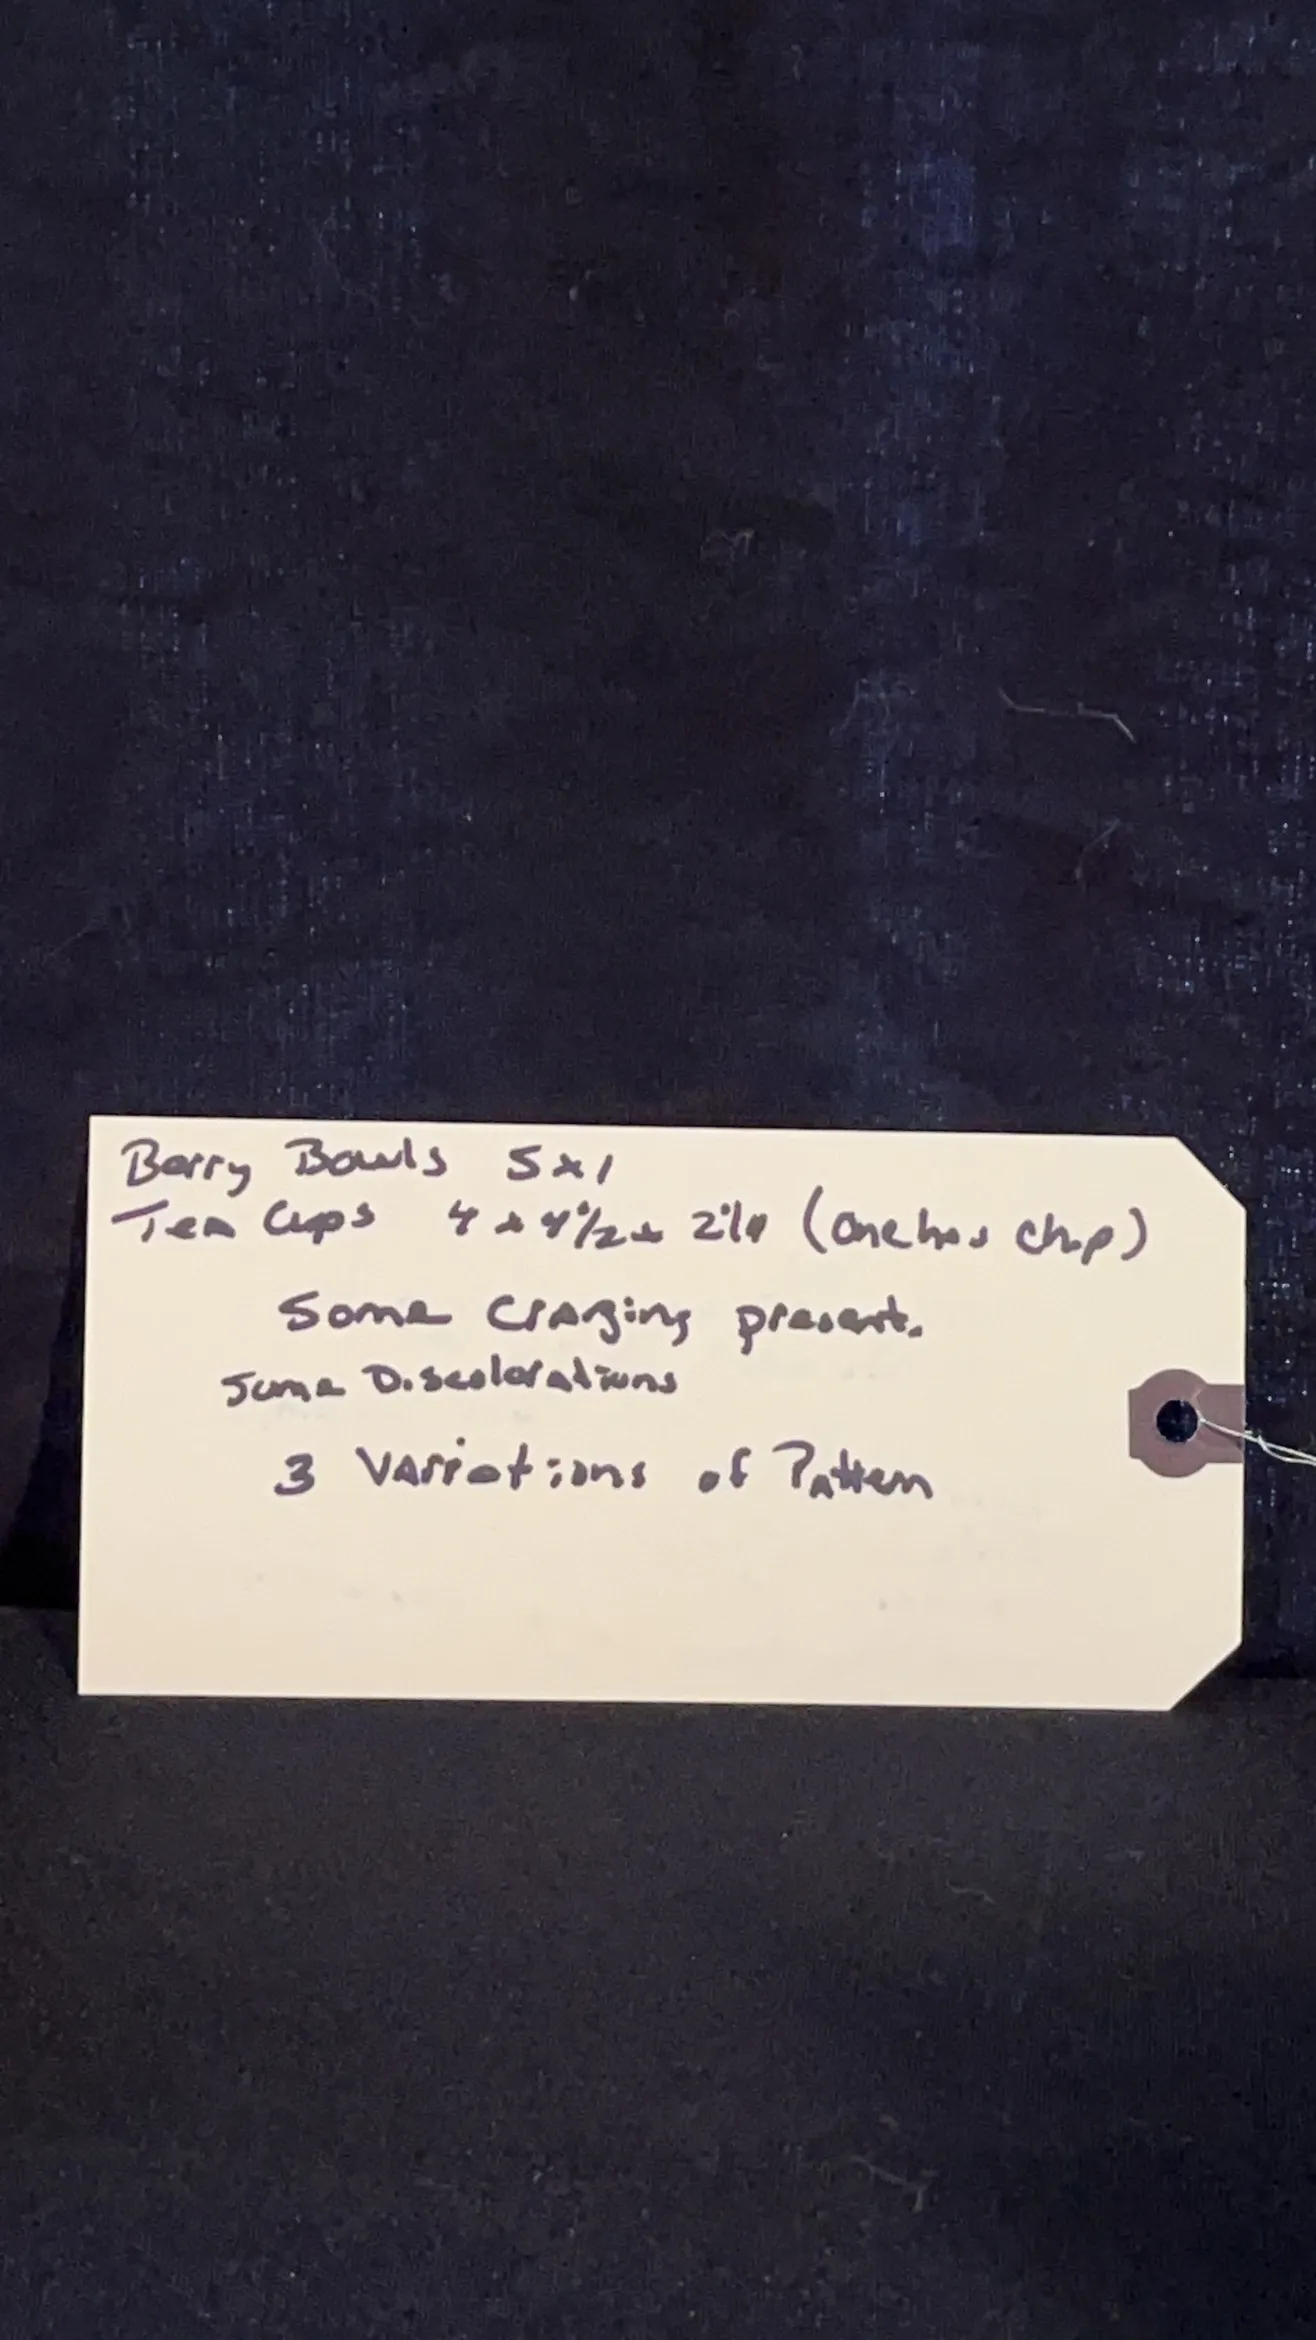 Berry Bowls 5x1
Tea Cups 4 x 4 1/2 x 2 1/4 (one has chip)
Some Crazing present.
Some Discolorations
3 Variations of Pattern